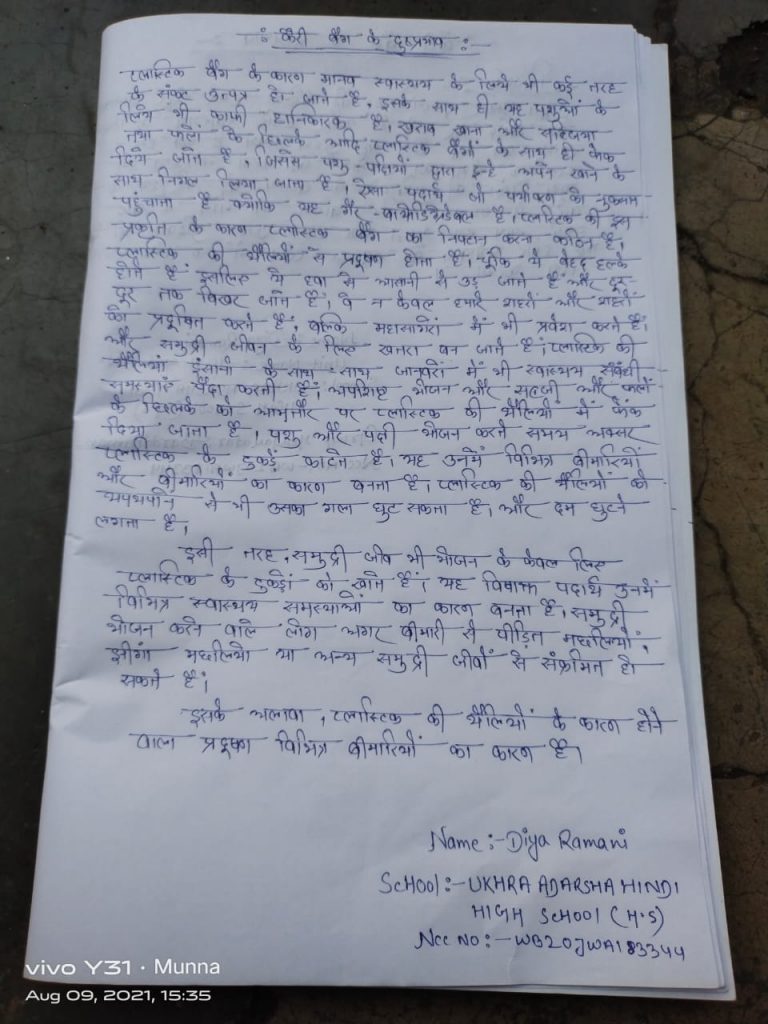 : कैरी बैग के दुष्प्रभाव :
प्लास्टिक बैग के कारण मानव स्वास्थय के लिये भी कई तरह
के संकट उत्पन्न हो जाते है, इसके साथ ही यह पशुओं के
लिये भी काफी हानिकारक है, खराब खाना और सब्जियां
तथा फलों के छिलके आदि प्लास्टिक बैगों के साथ ही फेंक
दिये जाते है, जिसमें पशु-पक्षियों द्वारा इन्हे अपने खाने के
साथ निगल लिया जाता है, ऐसा पदार्थ जो पर्यावरण को नुकसान
पहुंचाता है क्योंकि यह गैर-बायोडिग्रेडेबल है, प्लास्टिक की इस
प्रकृति के कारण प्लास्टिक बैग का निपटान करना कठिन है,
प्लास्टिक की थैलियों से प्रदूषण होता है। चूंकि ये बेहद हल्के
होते हैं इसलिए ये हवा से आसानी से उड़ जाते हैं और दूर-
दूर तक बिखर जाते हैं, वे न केवल हमारे शहरों और शहरों
को प्रदूषित करते हैं, बल्कि महासागरों में भी प्रवेश करते हैं।
और समुद्री जीवन के लिए खतरा बन जाते हैं। प्लास्टिक की
थैलियां इंसानों के साथ-साथ जानवरों में भी स्वास्थय संबंधी
समस्याएं पैदा करती हैं। अपशिष्ट भोजन और सब्जी और फलों
के छिलके को आमतौर पर प्लास्टिक की थैलियों में फेंक
दिया जाता है, पशु और पक्षी भोजन करते समय अक्सर
प्लास्टिक के टुकड़े काटते हैं। यह उनमें विभिन्न बीमारियों
और बीमारियों का कारण बनता है। प्लास्टिक की थैलियों को
से भी उसका गला घुट सकता है। और दम घुटने
लगता है।
इसी तरह, समुद्री जीव भी भोजन के केवल लिए
प्लास्टिक के टुकड़ों को खाते हैं। यह विषाक्त पदार्थ उनमें
विभिन्न स्वास्थय समस्याओं का कारण बनता है, समुद्री
भोजन करने वाले लोग अगर बीमारी से पीड़ित मछलियों,
झींगा मछलियों या अन्य समुद्री जीवों से संक्रमित हो
सकते हैं।
इसके अलावा, प्लास्टिक की थैलियों के कारण होने
वाला प्रदूषण विभिन्न बीमारियों का कारण है।
Name:-Diya Ramani
School:-UKHRA ADARSHA HINDI
HIGH SCHOOL (H.S)
Ncc No:-WB20JWA183344
vivo Y31 · Munna
Aug 09, 2021, 15:35